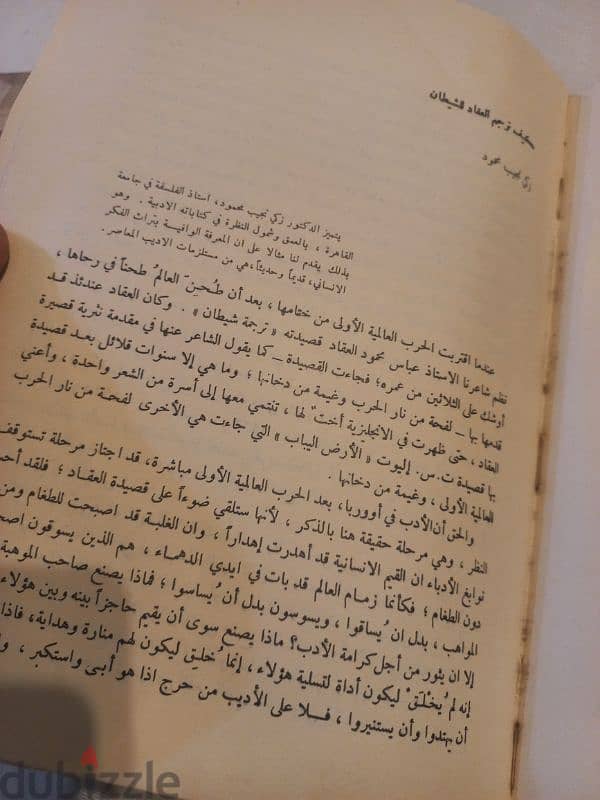 كيف ترجم العقاد للشيطان
زكي نجيب محمود
يتميز الدكتور زكي نجيب محمود، استاذ الفلسفة في جامعة
القاهرة ، بالعمق وشمول النظرة في كتاباته الادبية . وهو
بذلك يقدم لنا مثالا على ان المعرفة الوافية بتراث الفكر
الانساني، قديماً وحديثاً، هي من مستلزمات الاديب المعاصر.
عندما اقتربت الحرب العالمية الأولى من ختامها ، بعد أن طُحِنَ العالمُ طحناً في رحاها ،
نظم شاعرنا الاستاذ عباس محمود العقاد قصيدته « ترجمة شيطان » . وكان العقاد عندئذ قد
أوشك على الثلاثين من عمره؛ فجاءت القصيدة – كما يقول الشاعر عنها في مقدمة نثرية قصيرة
قدمها بها – لفحة من نار الحرب وغيمة من دخانها ؛ وما هي إلا سنوات قلائل بعد قصيدة
العقاد ، حتى ظهرت في الانجليزية أختٌ لها ، تنتمي معها إلى أسرة من الشعر واحدة ، وأعني
بها قصيدة ت.س. إليوت « الأرض اليباب » التي جاءت هي الأخرى لفحة من نار الحرب
العالمية الأولى ، وغيمة من دخانها .
والحق أن الأدب في أوروبا، بعد الحرب العالمية الأولى مباشرة، قد اجتاز مرحلة تستوقف
النظر ، وهي مرحلة حقيقة هنا بالذكر ، لأنها ستلقي ضوءاً على قصيدة العقاد ؛ فلقد
نوابغ الأدباء ان القيم الانسانية قد أهدرت إهداراً ، وان الغلبة قد اصبحت للطغام ومن
دون الطغام ؛ فكأنما زمام العالم قد بات في ايدي الدهماء ، هم الذين يسوقون
المواهب ، بدل ان يُساقوا ، ويسوسون بدل أن يُساسوا ؛ فماذا يصنع صاحب الموهبة
إلا ان يثور من أجل كرامة الأدب؟ ماذا يصنع سوى أن يقيم حاجزاً بينه وبين هؤلاء
إنه لم يُخْلَقْ ليكون أداة لتسلية هؤلاء ، إنما خُلِق ليكون لهم منارة وهداية، فاذا
أن يهتدوا وأن يستنيروا ، فلا على الأديب من حرج اذا هو أبى واستكبر ،
dubizzle